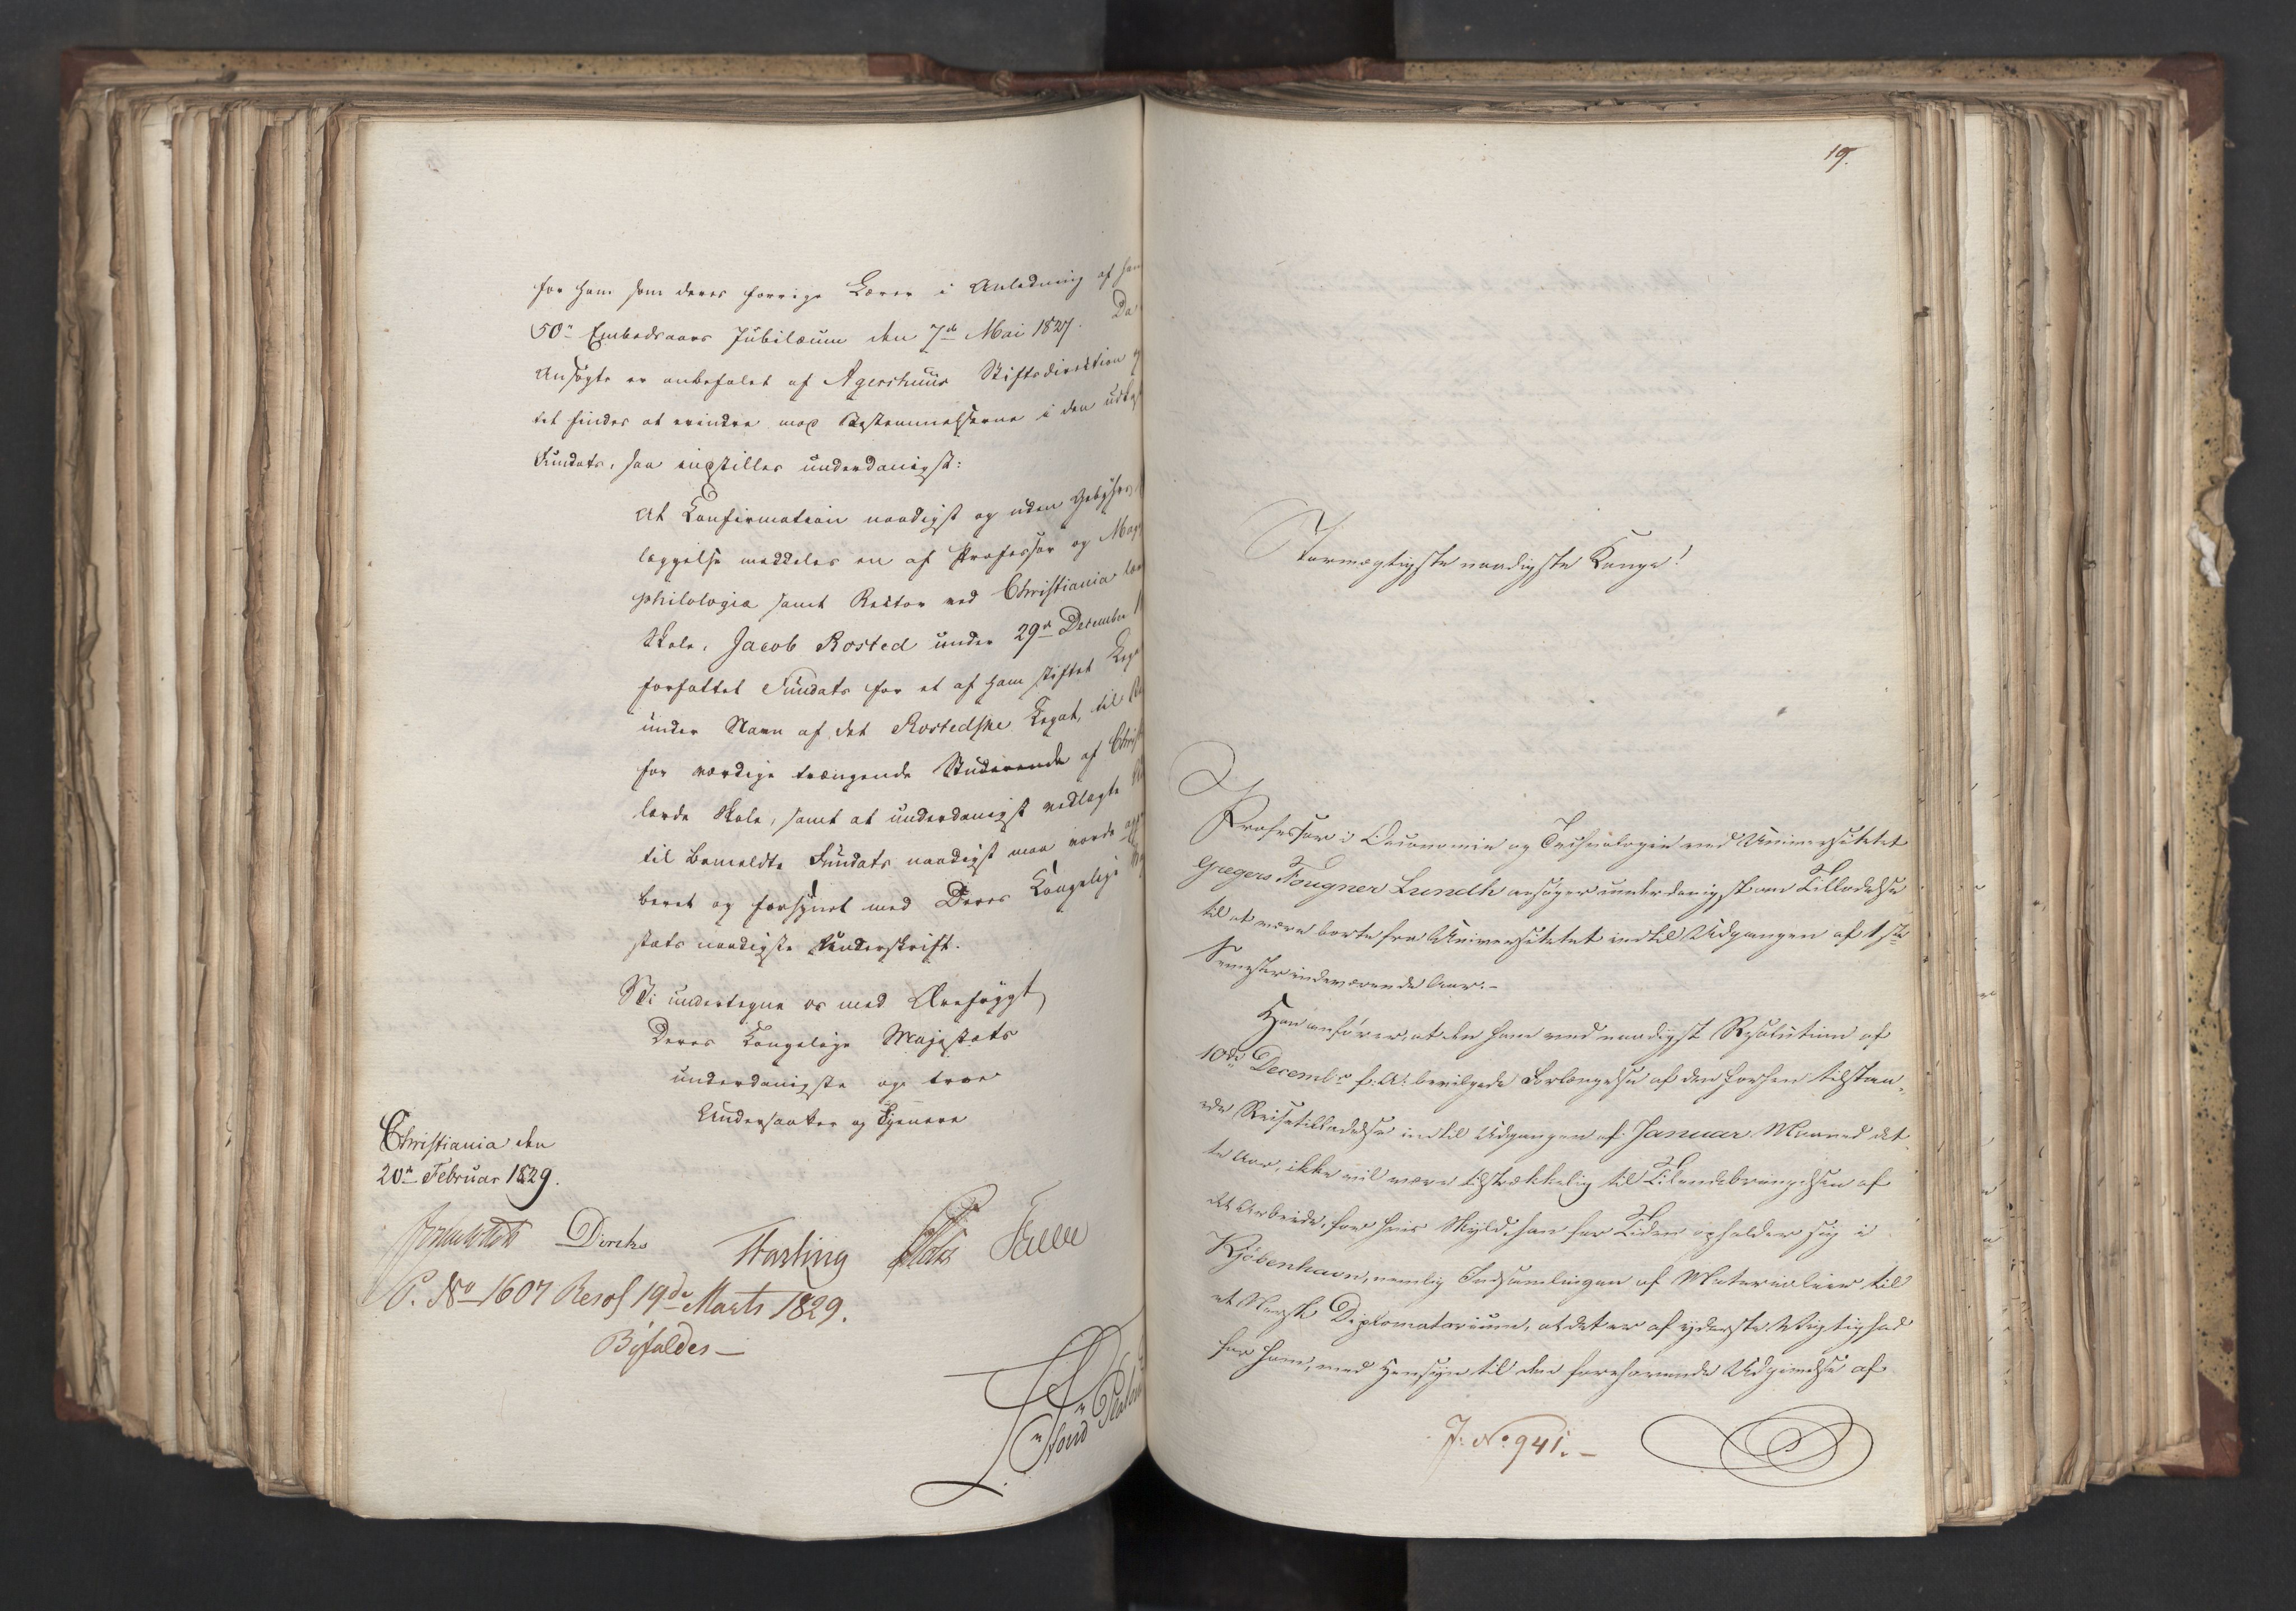 for ham som deres forrige Lærer i Anledning af
50de Embedsaars Jubilæum den 7de Mai 1827. Da
Ansøgte er anbefalet af Agershuus Stiftsdirektion
tet findes at erindre mod Bestemmelserne i den
Fundats, saa indstilles underdanigst:
At Confirmation naadigst og uden Gebyhrs
læggelse meddeles en af Professor og
philologia samt Rector ved Christiania
Skole, Jacob Rosted under 29de December
forfattet Fundats for et af ham stiftet
under Navn af det Rostedske Legat, til
for værdige trængende Studerende af
lærde Skole, samt at underdanigst vedlagte
til bemeldte Fundats naadigst maa vorde
beret og forsynet med Deres Kongelige
stæts naadigste Underskrift.
Vi undertegne os med Ærefrygt,
Deres Kongelige Majestæts
underdanigste og troe
Undersaatter og Tjenere
Christiania den
20de Februar 1829.
Diriks
P. No 1607 Resol 19de Marts 1829.
Bifaldes —
19.
Stormægtigste naadigste Konge!
Professor i Oeconomie og Technologien ved Universitetet
Gregers Fougner Lundh ansøger underdanigst om Tilladelse
til at være borte fra Universitetet indtil Udgangen af 1ste
Semester indeværende Aar.-
Han anfører, at den ham ved naadigst Resolution af
10de Decembr f: A: bevilgede Forlængelse af den forhen tilstaa-
ede Reisetilladelse indtil Udgangen af Januar Maaned det-
te Aar, ikke vil være tilstrækkelig til Tilendebringelsen af
det Arbeide, for hvis Skyld han for Tiden opholder sig i
Kjøbenhavn, nemlig Indsamlingen af Materialier til
et Norsk Diplomatarium, at det er af yderste Vigtighed
for ham, med Hensyn til den forehavende Udgivelse af
J: No 941.-